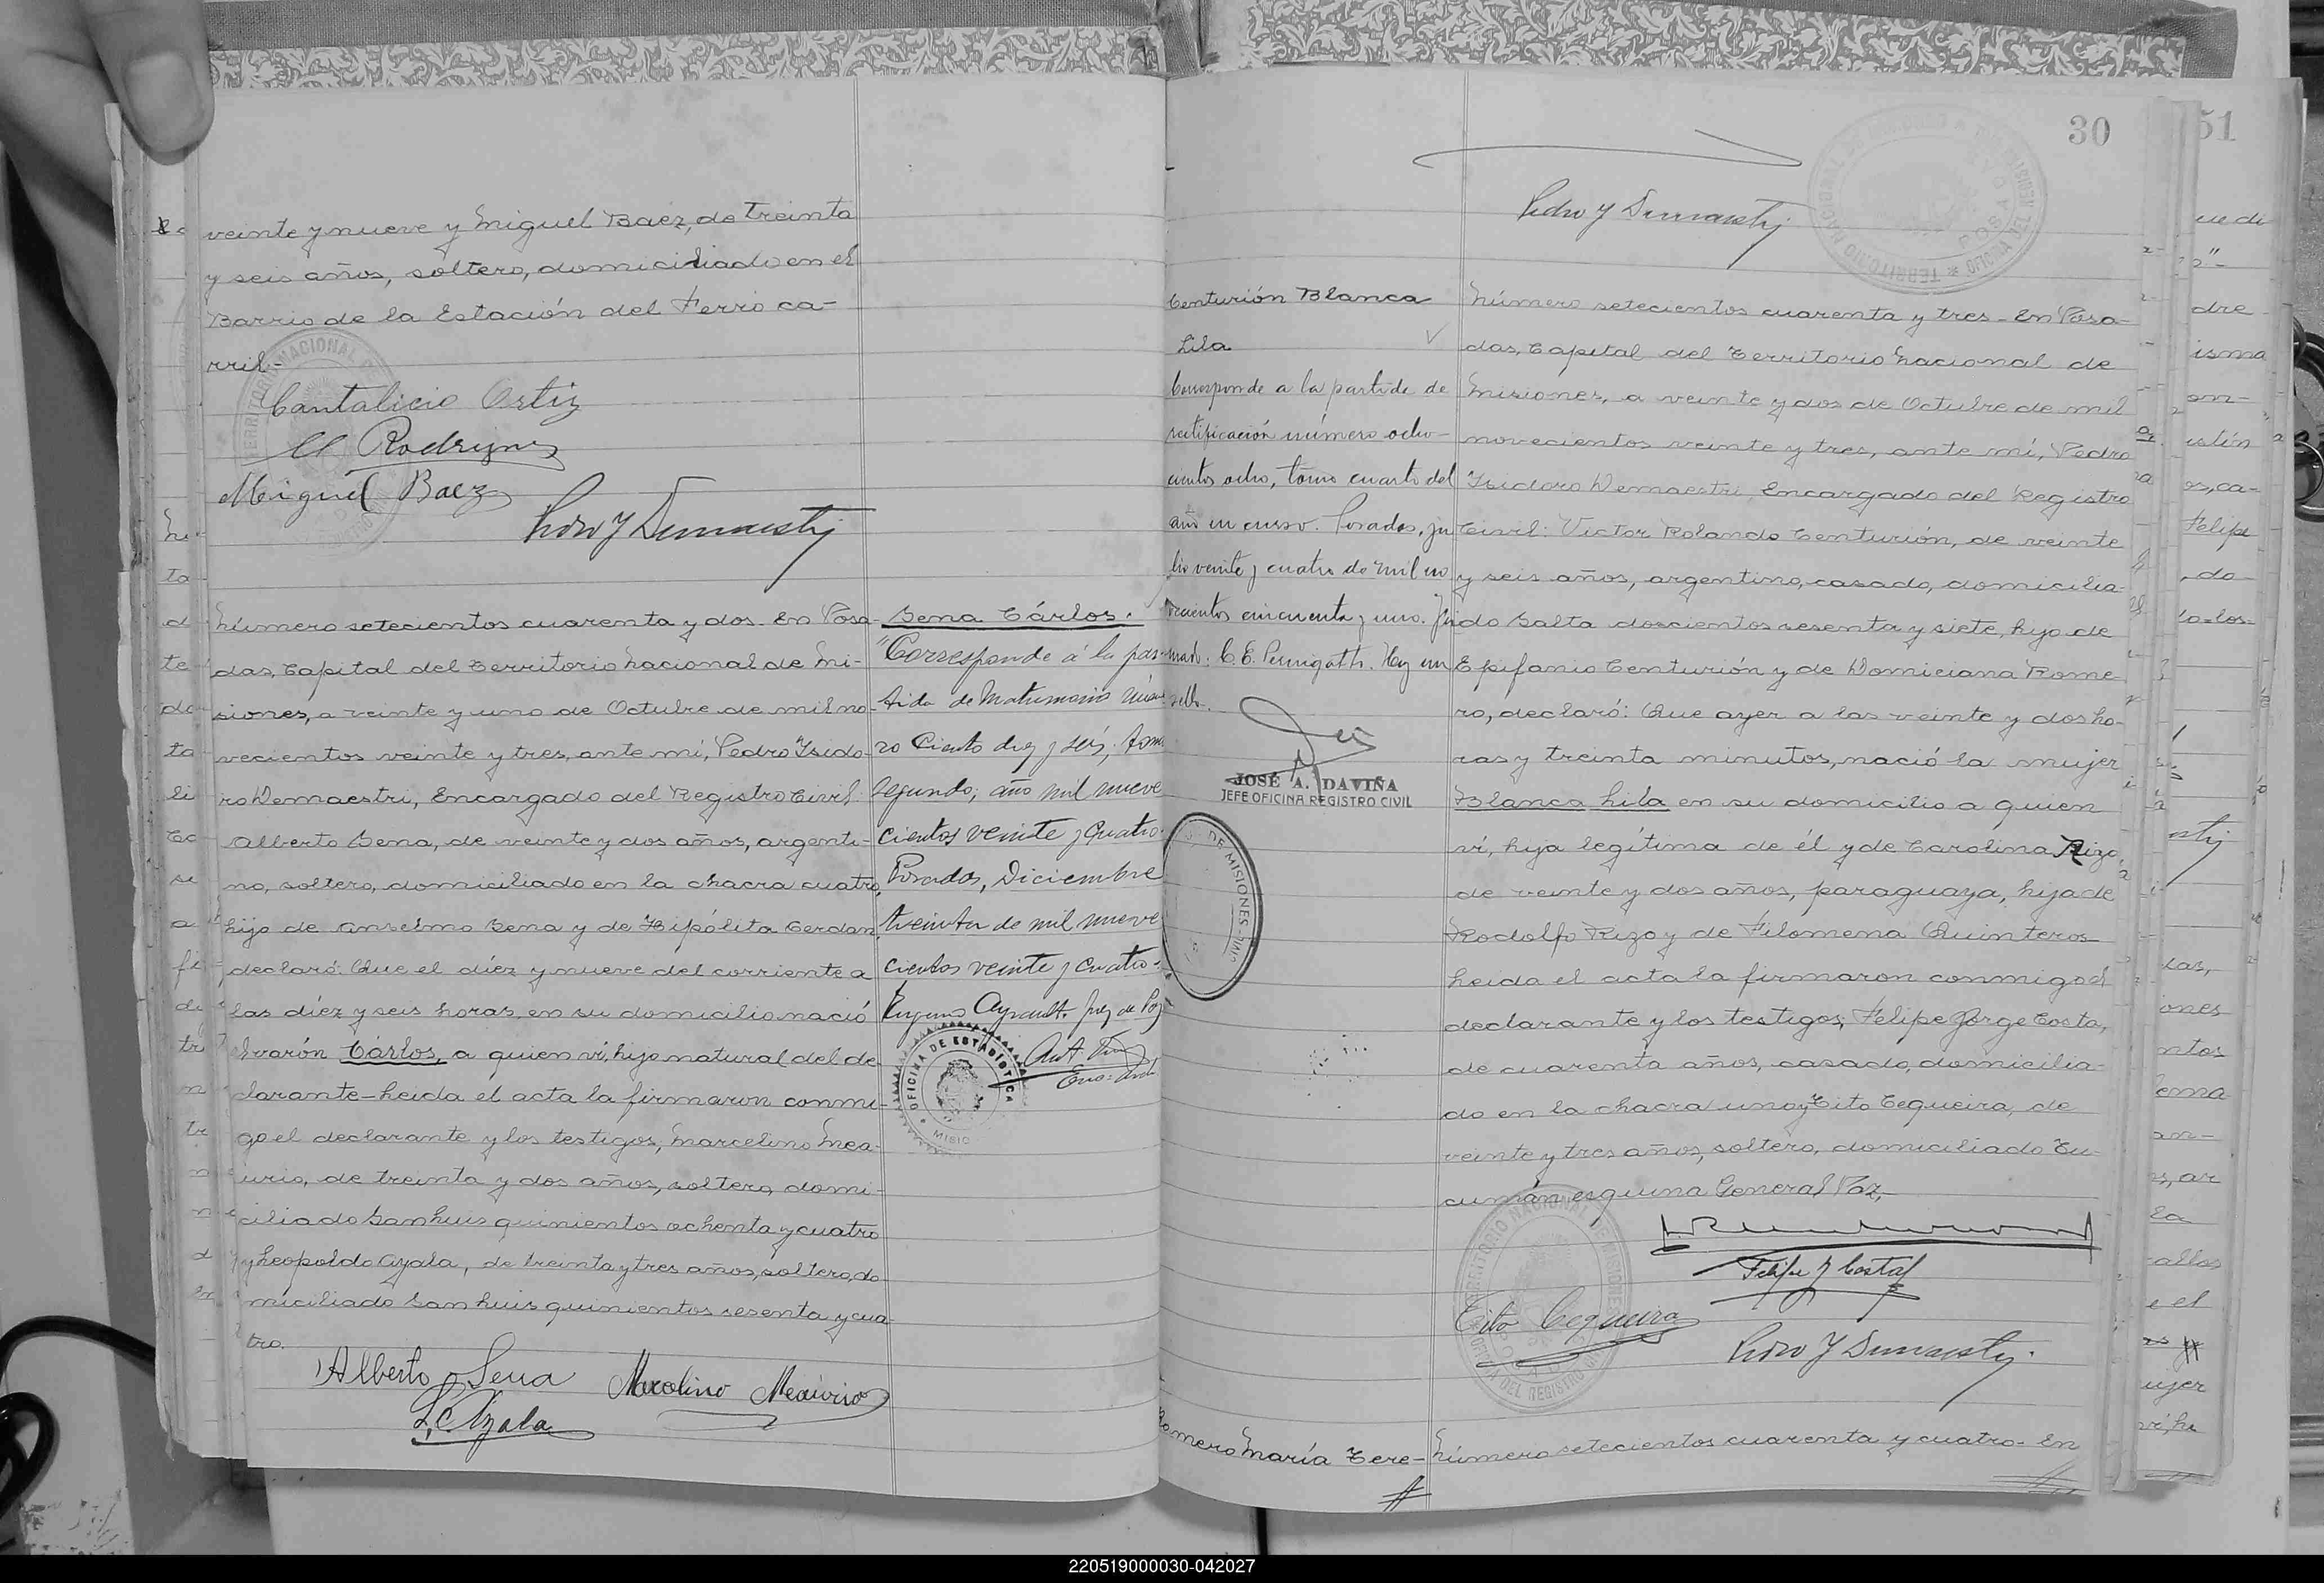 veinte y nueve y Miguel Baez, de treinta
y seis años, soltero, domiciliado en el
Barrio de la Estación del Ferro ca-
rril-
Cantalicio Ortiz
Rodrigu
Miguel Baez
Pedro Y Demaestri
Número setecientos cuarenta y dos- En Posa-
das, Capital del Territorio Nacional de Mi-
siones, a veinte y uno de Octubre de mil no-
vecientos veinte y tres, ante mí, Pedro Ysido-
ro Demaestri, Encargado del Registro Civil:
Alberto Sena, de veinte y dos años, argenti-
no, soltero, domiciliado en la chacra cuatro,
hijo de Anselmo Sena y de Hipólita Cerdan,
declaró: Que el diéz y nueve del corriente a
las diéz y seis horas, en su domicilio nació
el varón Cárlos, a quien ví, hijo natural del de-
clarante- Leida el acta la firmaron conmi-
go el declarante y los testigos, Marcelino Mea-
urio, de treinta y dos años, soltero, domi-
ciliado San Luis quinientos ochenta y cuatro
y Leopoldo Ayala, de treinta y tres años, soltero, do-
miciliado San Luis quinientos sesenta y cua-
tro.
Alberto Sena Marcelino Meaurio
L. C. Ayala
Sena Cárlos.
"Corresponde á la par-
tida de Matrimonio núme-
ro Ciento diez y seis, tomo
segundo, año mil nueve
cientos veinte y cuatro.
Posadas, Diciembre
treinta de mil nueve
cientos veinte y cuatro.
Ayrault. Juez de Paz
OFICINA DE ESTADISTICA
MISIO
30
51
Pedro Y Demaestri
Centurión Blanca
Lila
Corresponde a la partida de
rectificación número ocho-
cientos ocho, tomo cuarto del
año en curso. Posadas, ju
lio veinte y cuatro de mil no
vecientos cincuenta y uno. Fir
mado: C. E. Hay un
sello.
JOSÉ A. DAVIÑA
JEFE OFICINA REGISTRO CIVIL
DE MISIONES
Número setecientos cuarenta y tres- En Posa-
das, Capital del Territorio Nacional de
Misiones, a veinte y dos de Octubre de mil
novecientos veinte y tres, ante mí, Pedro
Ysidoro Demaestri, Encargado del Registro
Civil: Victor Rolando Centurión, de veinte
y seis años, argentino, casado, domicilia-
do Salta doscientos sesenta y siete, hijo de
Epifanio Centurión y de Domiciana Rome-
ro, declaró: Que ayer a las veinte y dos ho-
ras y treinta minutos, nació la mujer
Blanca Lila en su domicilio a quien
ví, hija legítima de él y de Carolina Rizo,
de veinte y dos años, paraguaya, hija de
Rodolfo Rizo y de Filomena Quinteros-
Leida el acta la firmaron conmigo el
declarante y los testigos, Felipe Jorge Costa,
de cuarenta años, casado, domicilia-
do en la chacra uno y Tito Cequeira, de
veinte y tres años, soltero, domiciliado Tu-
cumán esquina General Paz.-
Felipe J Costa
Tito Cequeira
Pedro Y Demaestri
TERRITORIO NACIONAL DE MISIONES
Romero María Tere-
Número setecientos cuarenta y cuatro- En
220519000030-042027